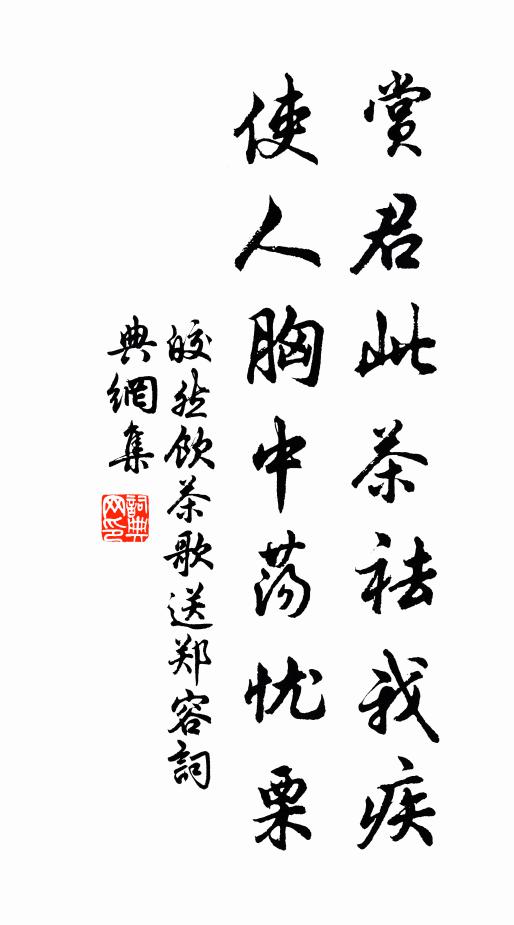 賞君此茶祛我疾
使人胸中荡忧栗
皎然饮茶歌送郑容詞
典網集
詞典网印